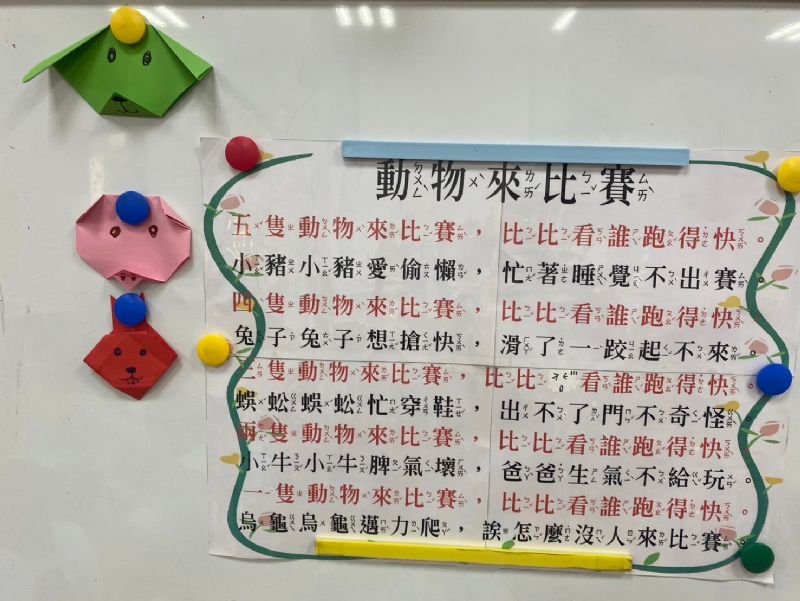 動物來比賽
五隻動物來比賽，比比看誰跑得快。
小豬小豬愛偷懶，忙著睡覺不出賽。
四隻動物來比賽，比比看誰跑得快。
兔子兔子想搶快，滑了一跤起不來。
三隻動物來比賽，比比看誰跑得快。
蜈蚣蜈蚣忙穿鞋，出不了門不奇怪。
兩隻動物來比賽，比比看誰跑得快。
小牛小牛脾氣壞，爸爸生氣不給玩。
一隻動物來比賽，比比看誰跑得快。
烏龜烏龜邁力爬，誒怎麼沒人來比賽。